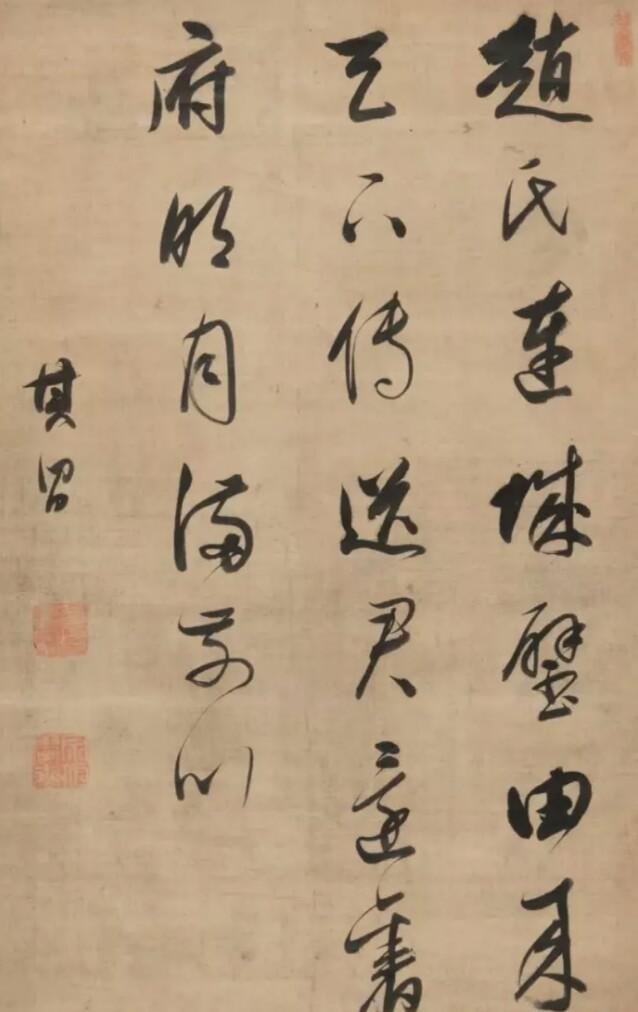 趙氏連城璧由来
天下傳送君還舊
府明月滿前川
其昌